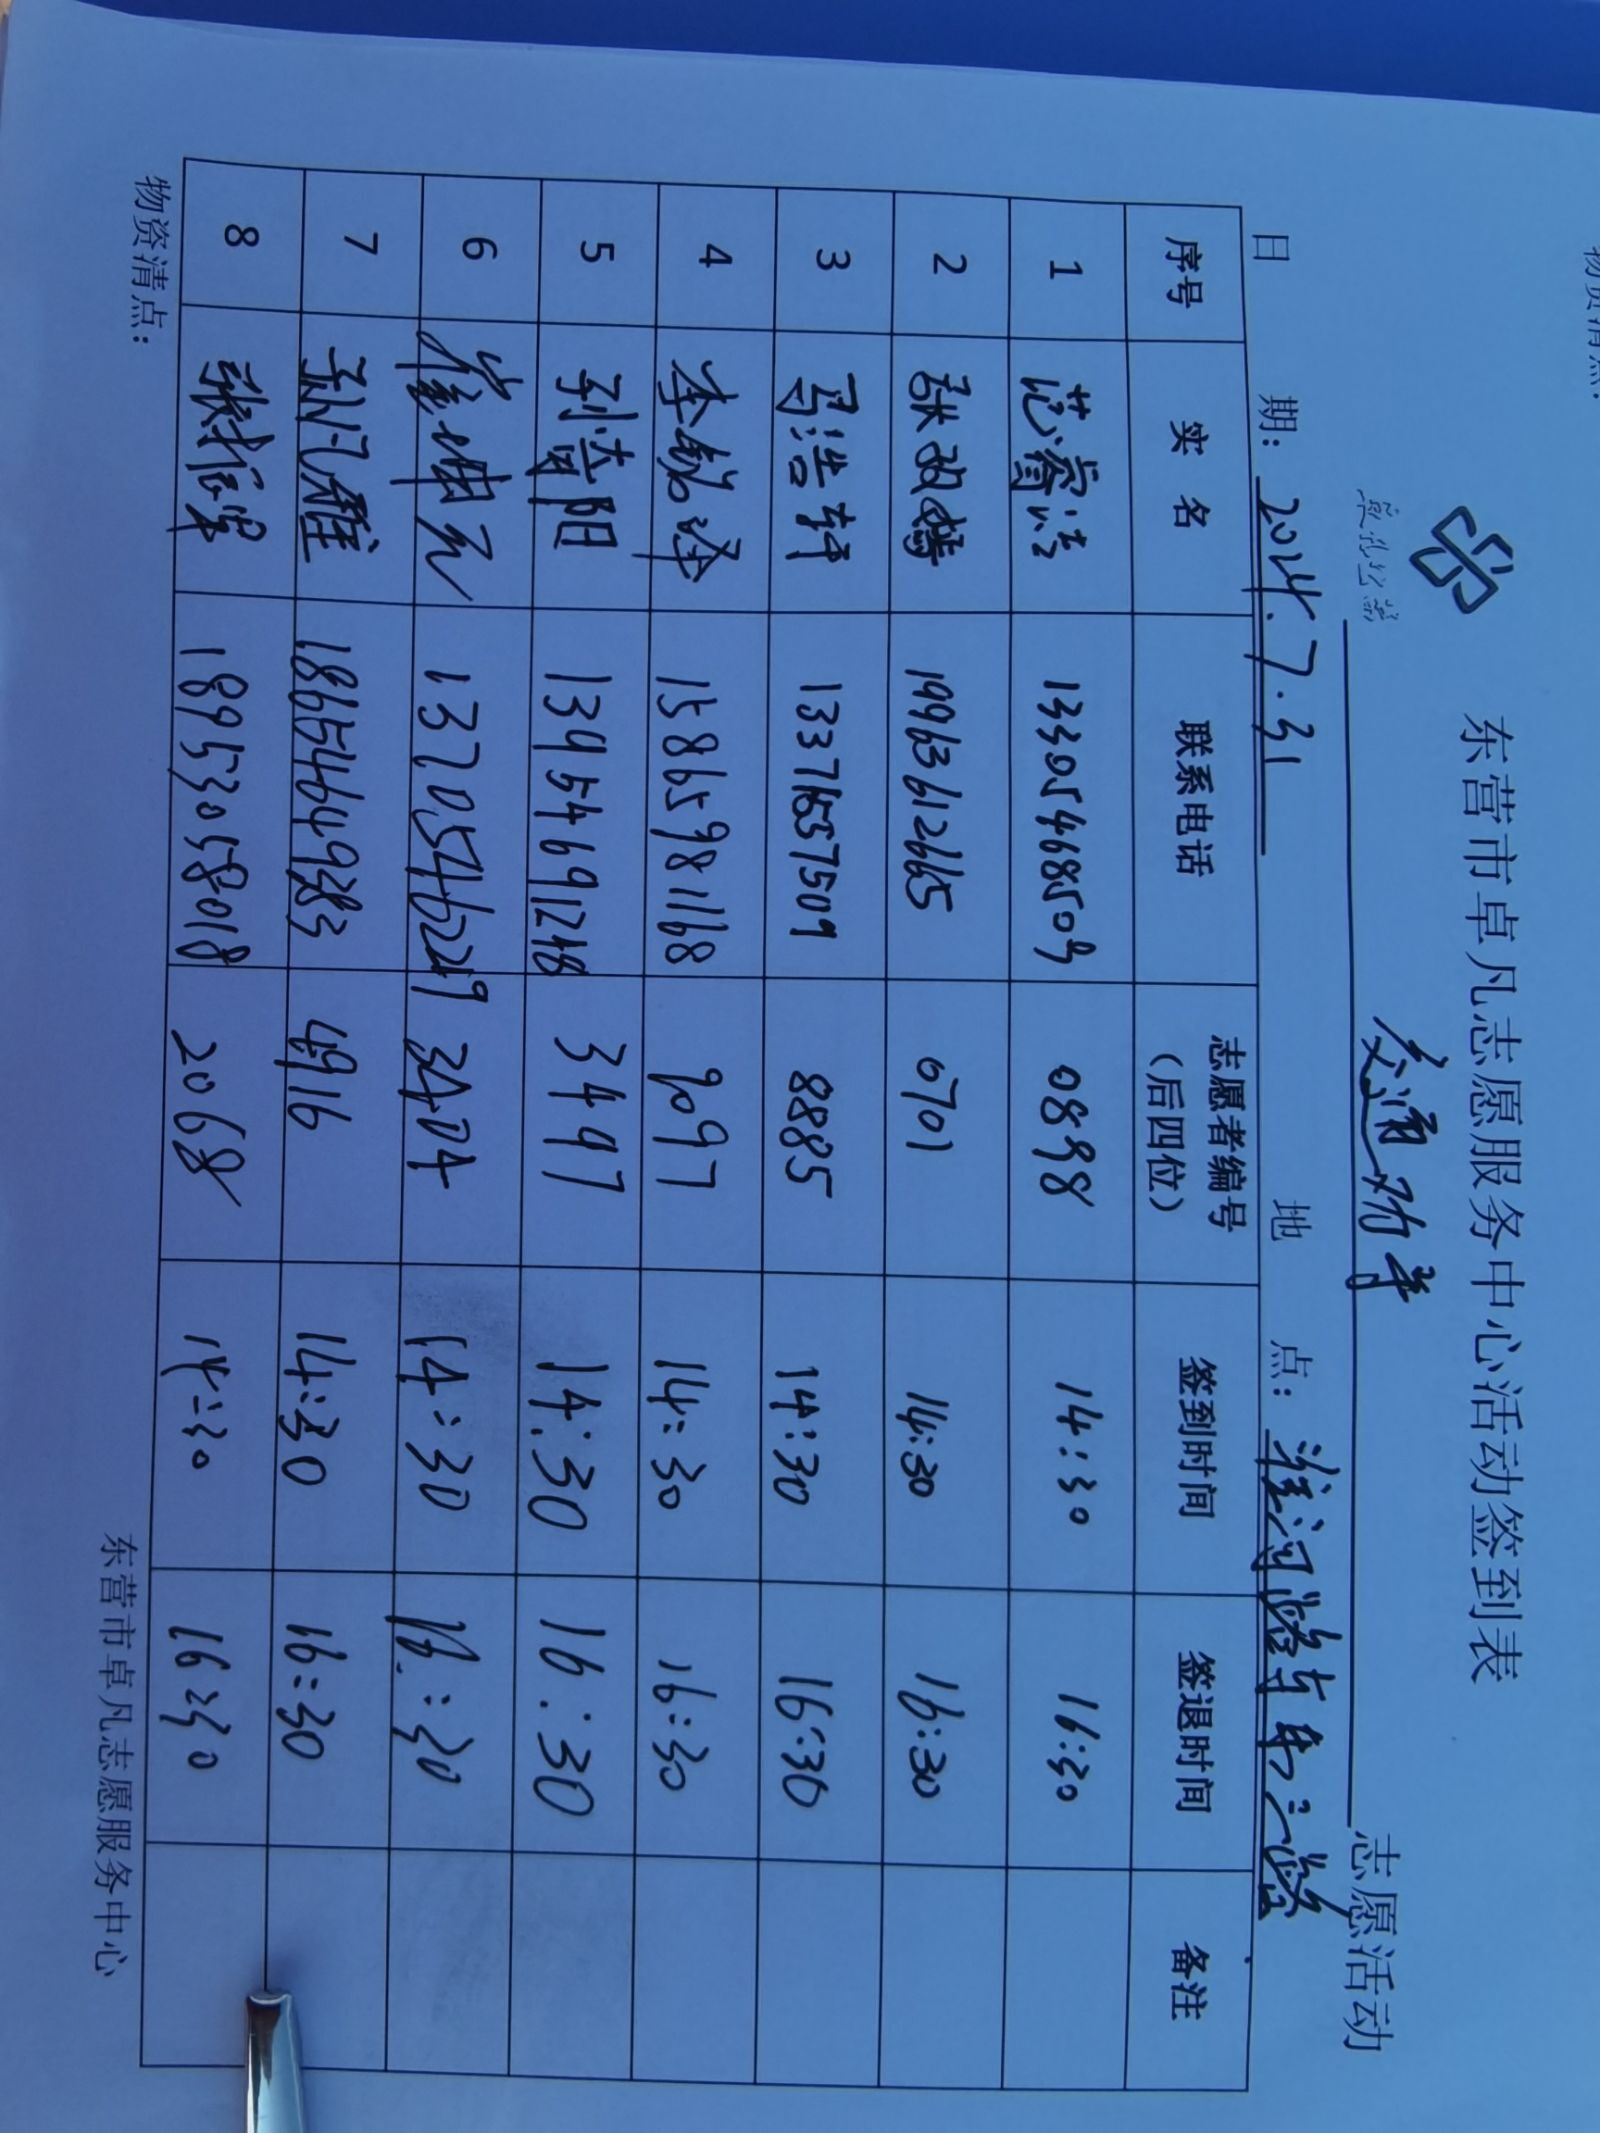 东营市卓凡志愿服务中心活动签到表
交通劝导 志愿活动
日 期：2024.7.31 地 点：淮河路与东三路
序号 实 名 联系电话 志愿者编号（后四位） 签到时间 签退时间 备注
1 范睿洁 13305468509 0898 14:30 16:30
2 19963612665 0701 14:30 16:30
3 马浩轩 8885 14:30 16:30
4 李铭泽 15865981168 9097 14:30 16:30
5 3497 14:30 16:30
6 崔坤元 13705462219 3404 14:30 16:30
7 孙凡雅 4916 14:30 16:30
8 张振洋 18953058018 2068 14:30 16:30
物资清点：
东营市卓凡志愿服务中心
物资清点：